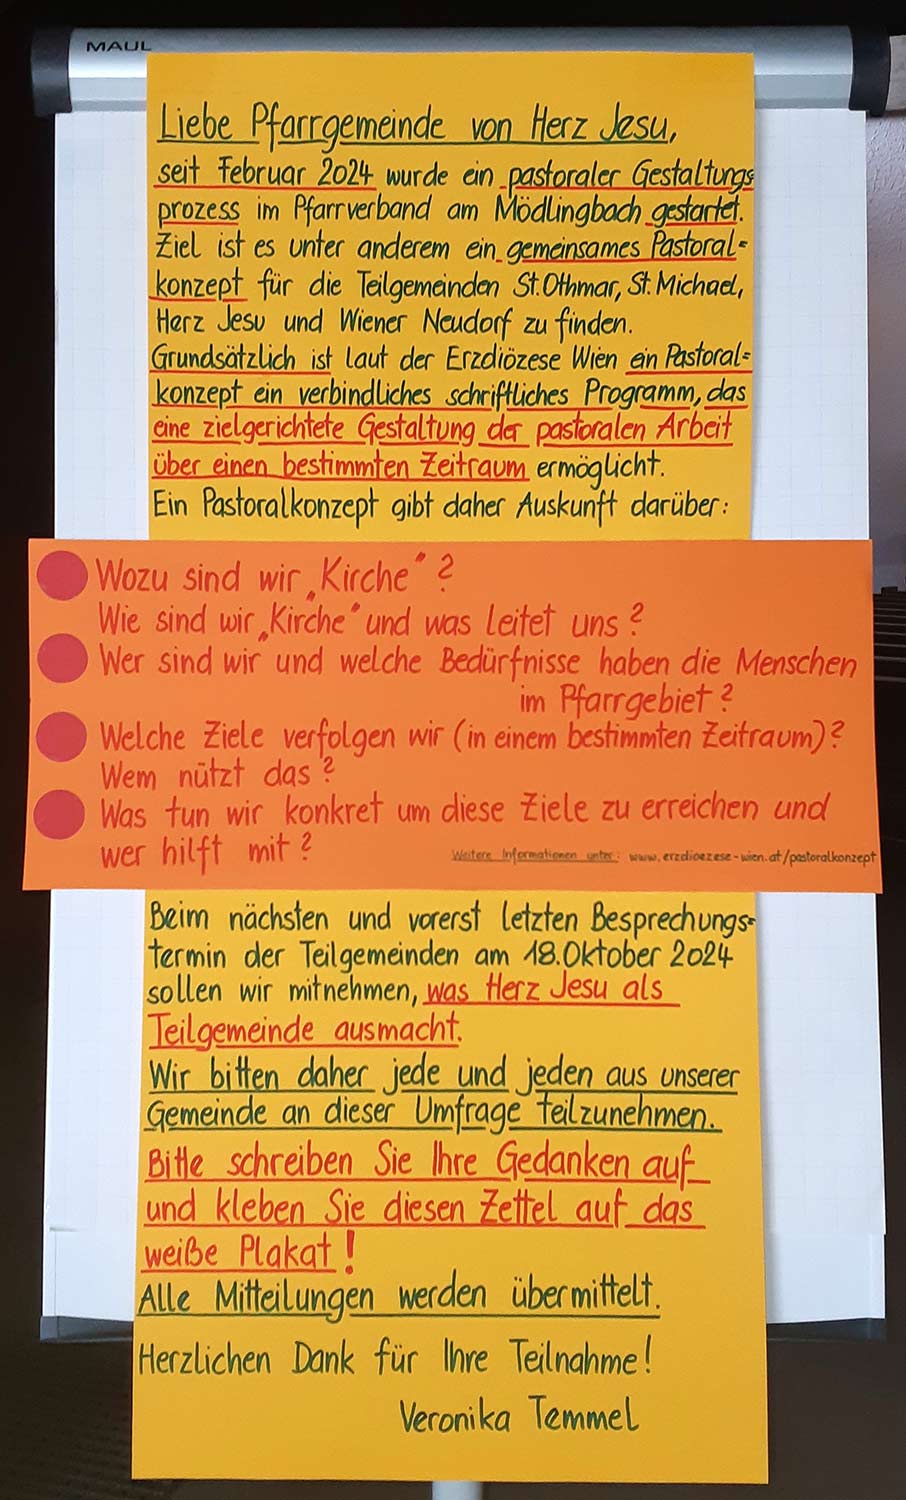 MAUL
Liebe Pfarrgemeinde von Herz Jesu,
seit Februar 2024 wurde ein pastoraler Gestaltungs-
prozess im Pfarrverband am Mödlingbach gestartet.
Ziel ist es unter anderem ein gemeinsames Pastoral=
konzept für die Teilgemeinden St. Othmar, St. Michael,
Herz Jesu und Wiener Neudorf zu finden.
Grundsätzlich ist laut der Erzdiözese Wien ein Pastoral=
konzept ein verbindliches schriftliches Programm, das
eine zielgerichtete Gestaltung der pastoralen Arbeit
über einen bestimmten Zeitraum ermöglicht.
Ein Pastoralkonzept gibt daher Auskunft darüber:
Wozu sind wir „Kirche“?
Wie sind wir „Kirche“ und was leitet uns?
Wer sind wir und welche Bedürfnisse haben die Menschen
im Pfarrgebiet?
Welche Ziele verfolgen wir (in einem bestimmten Zeitraum)?
Wem nützt das?
Was tun wir konkret um diese Ziele zu erreichen und
wer hilft mit?
Weitere Informationen unter: www.erzdioezese-wien.at/pastoralkonzept
Beim nächsten und vorerst letzten Besprechungs=
termin der Teilgemeinden am 18. Oktober 2024
sollen wir mitnehmen, was Herz Jesu als
Teilgemeinde ausmacht.
Wir bitten daher jede und jeden aus unserer
Gemeinde an dieser Umfrage teilzunehmen.
Bitte schreiben Sie Ihre Gedanken auf
und kleben Sie diesen Zettel auf das
weiße Plakat!
Alle Mitteilungen werden übermittelt.
Herzlichen Dank für Ihre Teilnahme!
Veronika Temmel